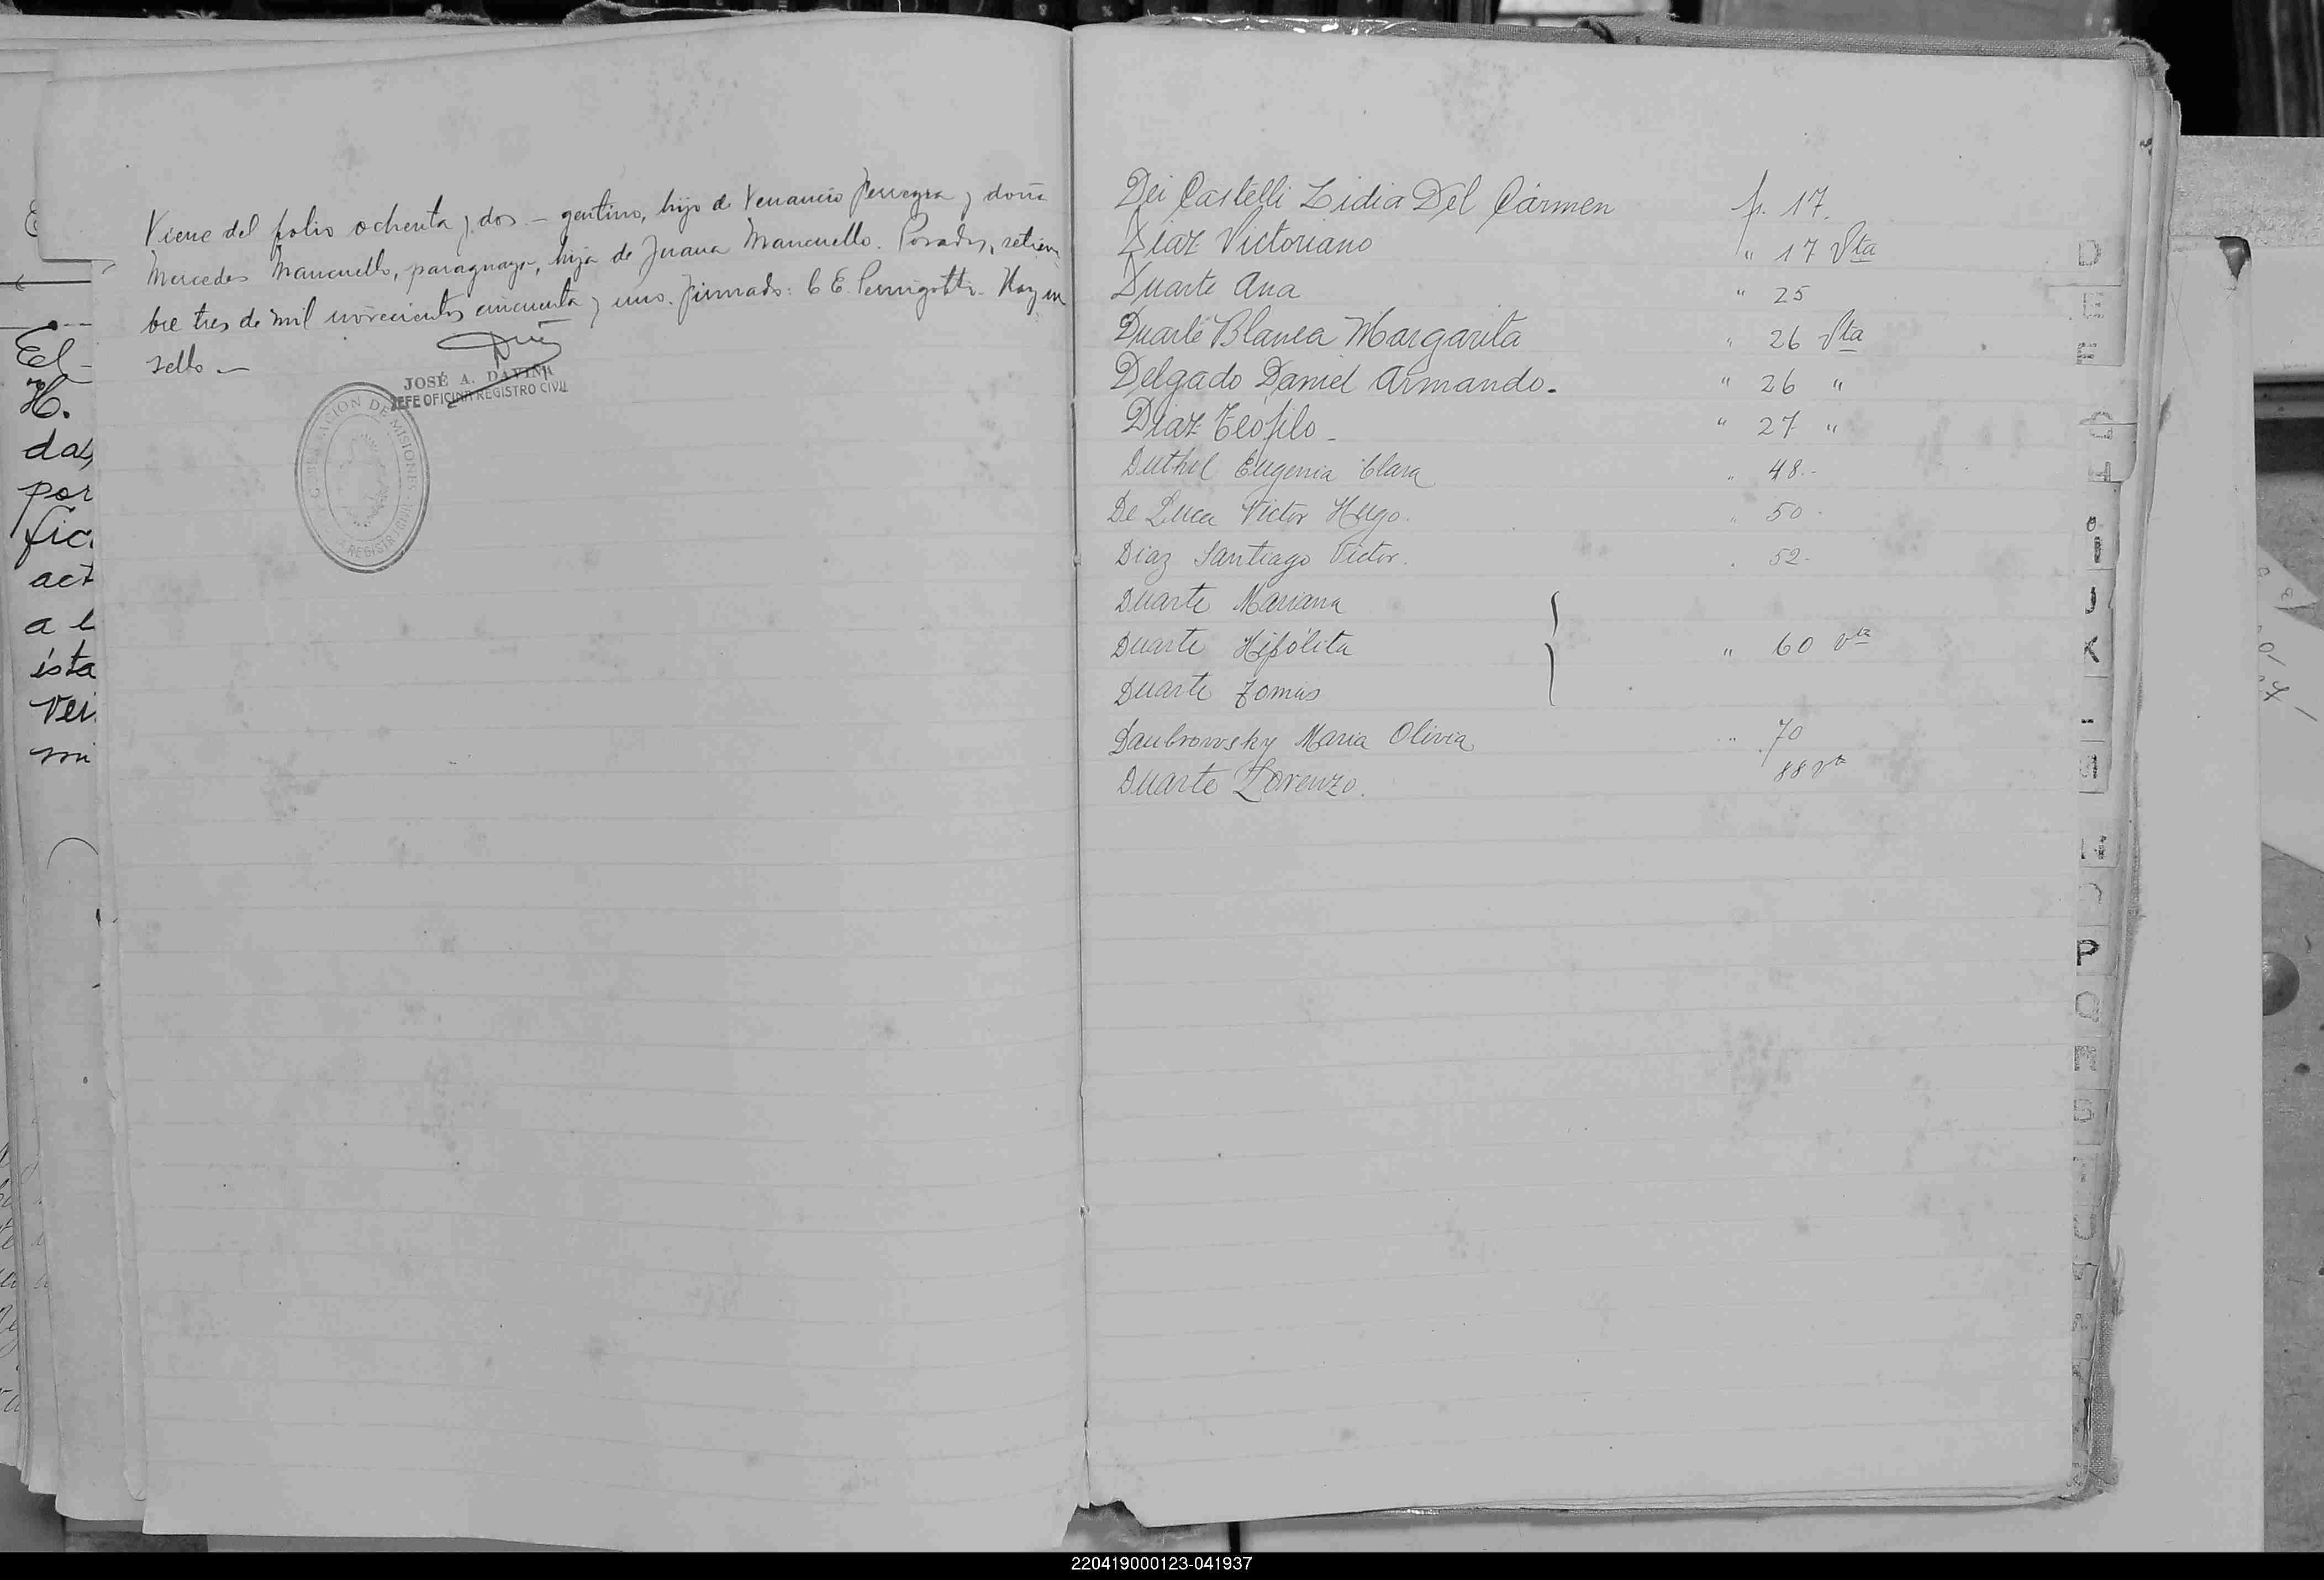 Viene del folio ochenta y dos. — gentino, hijo de Venancio Ferreyra y doña
Mercedes Mancuello, paraguaya, hija de Juana Mancuello. Posadas, setiem
bre tres de mil novecientos cincuenta y uno. Firmado: C. E. Hay un
sello —
JOSÉ A. DAVIÑA
JEFE OFICINA REGISTRO CIVIL
GOBERNACION DE MISIONES
REGISTRO CIVIL
El
H.
das,
por
fic
act
a l
ista
Vei
mi
Dei Castelli Lidia Del Cármen f. 17.
Diaz Victoriano " 17 Vta
Duarte Ana " 25
Duarte Blanca Margarita " 26 Vta
Delgado Daniel Armando. " 26 "
Diaz Teófilo _ " 27 "
Duthil Eugenia Clara " 48.-
De Luca Victor Hugo. " 50
Diaz Santiago Victor. " 52-
Duarte Mariana
Duarte Hipólita " 60 vta
Duarte Tomás
Daubrowsky Maria Olivia " 70
Duarte Lorenzo. 88 vta
D
E
F
G
H
J
K
P
Q
R
S
220419000123-041937